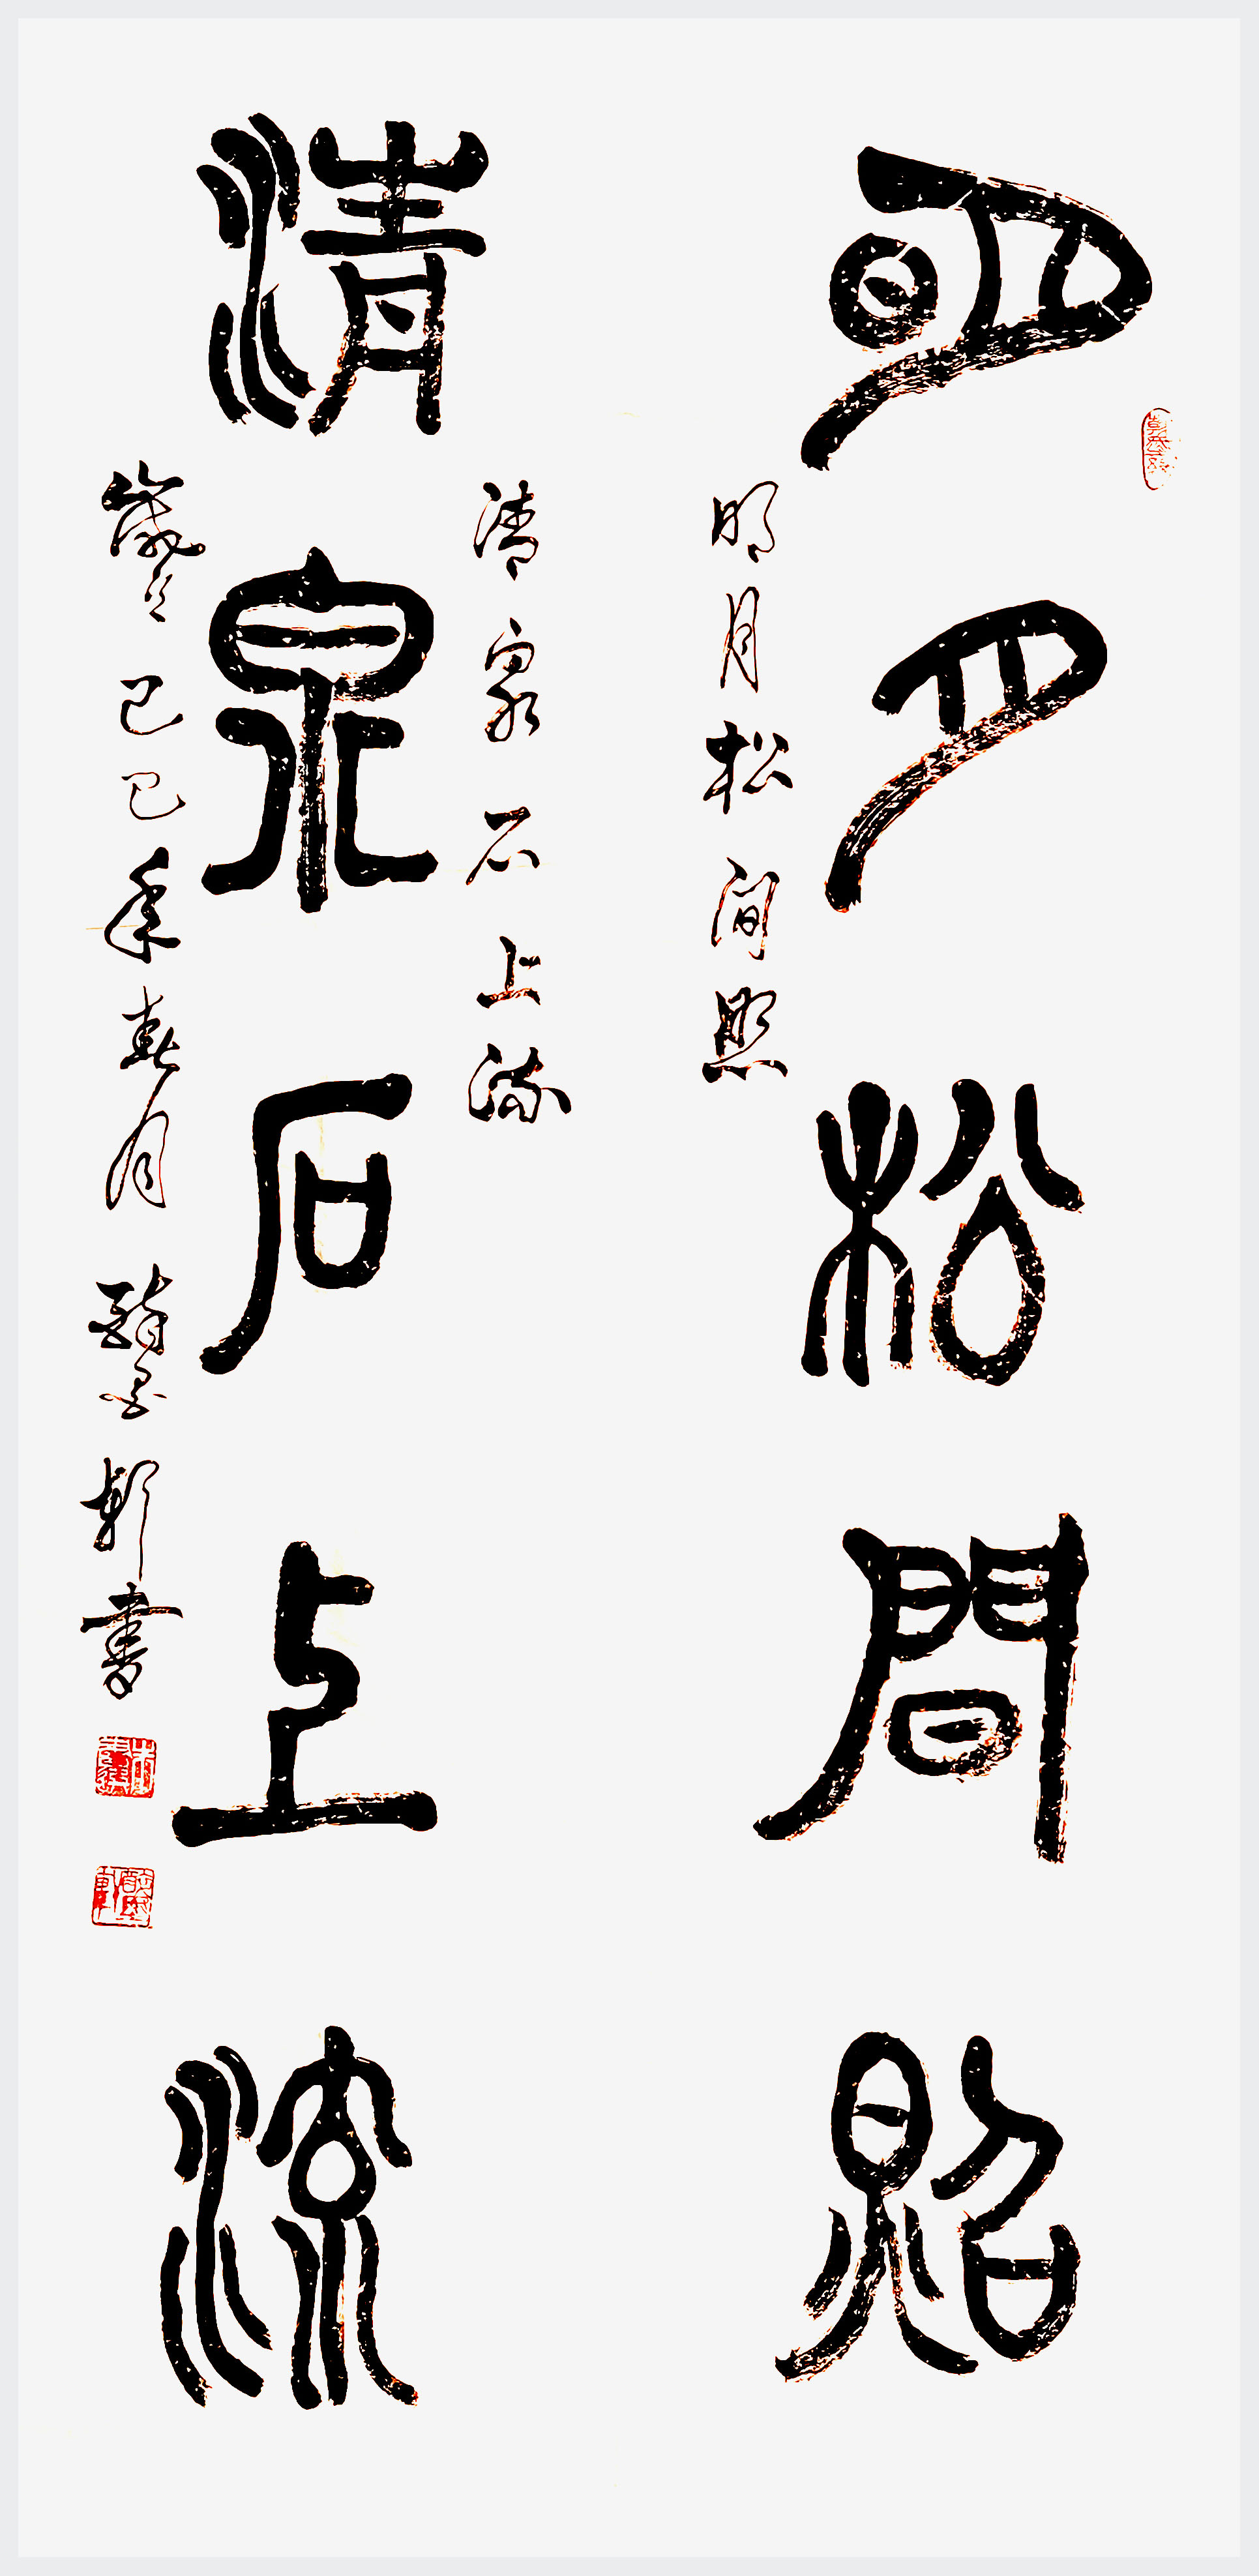 明月松間照
明月松间照
清泉石上流
清泉石上流
歲在己巳年春月醉墨軒書